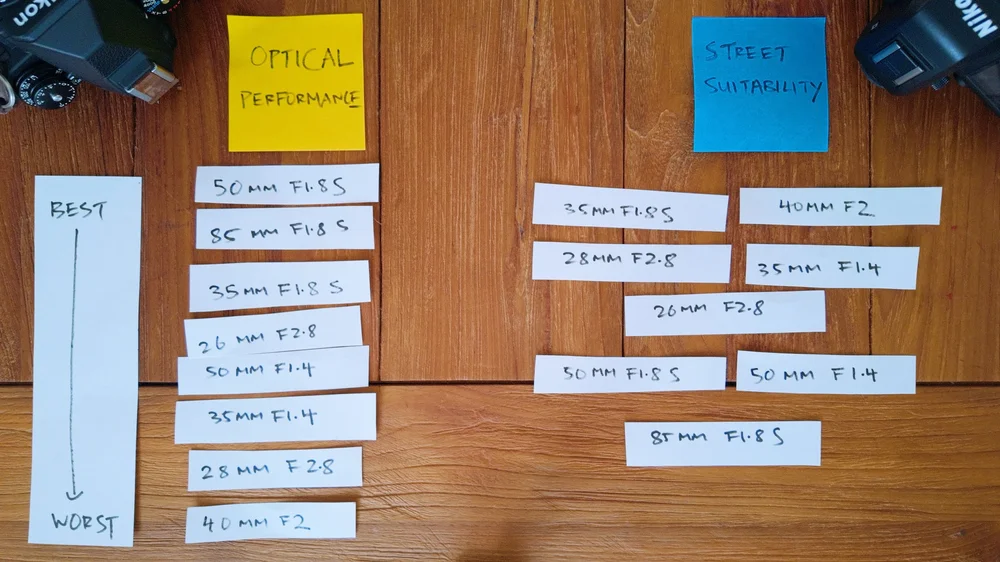 Nikon
OPTICAL
PERFORMANCE
STREET
SUITABILITY
Nikon
BEST
WORST
50MM F1.8 S
85 MM F1.8 S
35MM F1.8 S
26 MM F2.8
50MM F1.4
35MM F1.4
28MM F2.8
40MM F2
35MM F1.8S
40MM F2
28MM F2.8
35MM F1.4
26MM F2.8
50MM F1.8 S
50MM F1.4
85MM F1.8 S